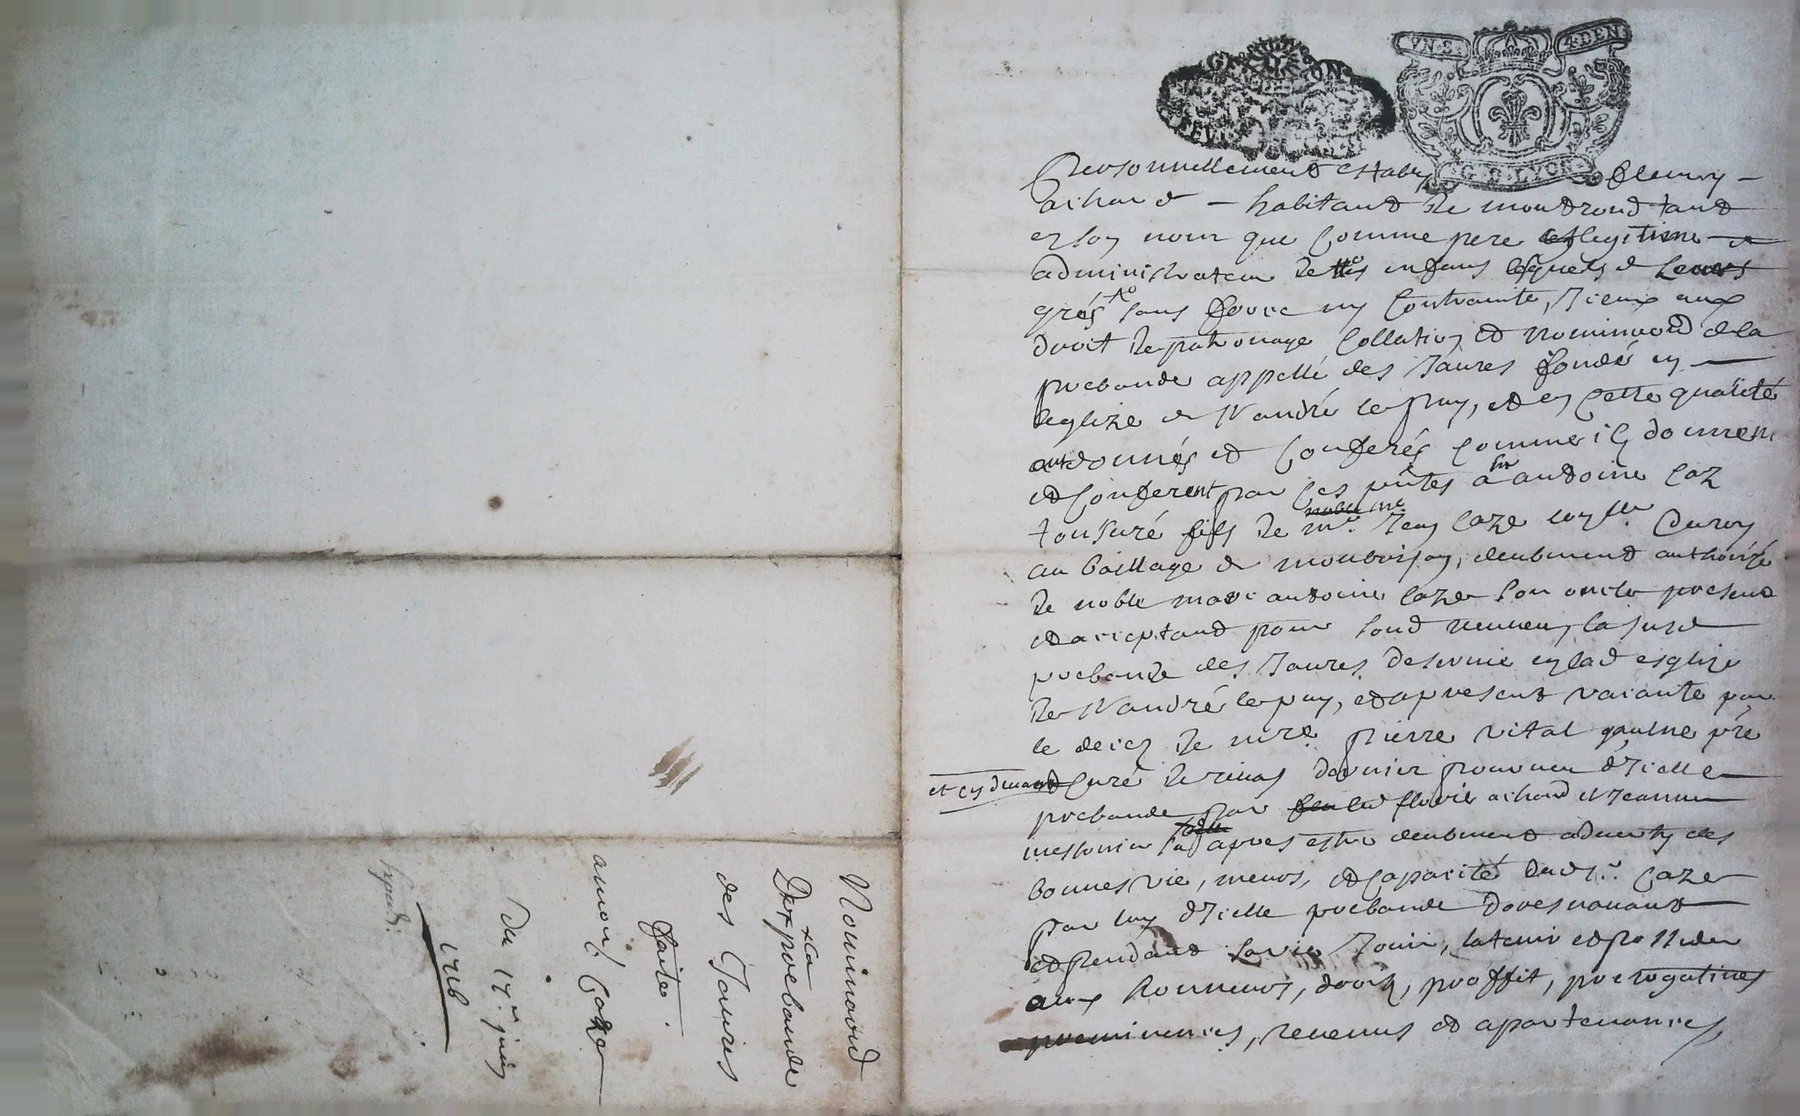 GENERATION
VN S. 4 DEN
G. D. LYON
Personnellement estably fleury
achard habitant de montrond tant
en son nom que comme pere legitime et
administrateur de ses enfans lesquels de leurs
grés sans force ny contrainte, Iceux aux
droit de patronage collation et nominaōn de la
prebande appellé des Jaures fondé en
leglize de St andré le puy, et en cette qualité
ont donnés et conferés comme ils donnent
et conferent par ces pñtes a sr antoine caze
tonsuré fils de mr. Jean caze coner. du roy
au bailliage de montbrison, deubment authorizé
de noble marc antoine caze son oncle present
et acceptant pour son nepveu, la susd
prebande des Jaures desservie en lad esglize
de St andré le puy, et a present vacante par
le deces de mre. pierre vital gaulne pre
et cy devant curé de rivas dernier pourveu d'Icelle
prebande par fleurie achard et Jeanne
messonier apres estre deubment advertis des
bonnes vie, meurs, et capacité dud sr. caze
par luy d'Icelle prebande doresnavant
et pendant sa vie Jouir, la tenir et posseder
aux honneurs, droits, proffit, prerogatives
preeminences, revenus et apartenances,
Nominaōn
De la prebande
des Jaures
faite.
a mon sr. Caze
Du 17e. juin